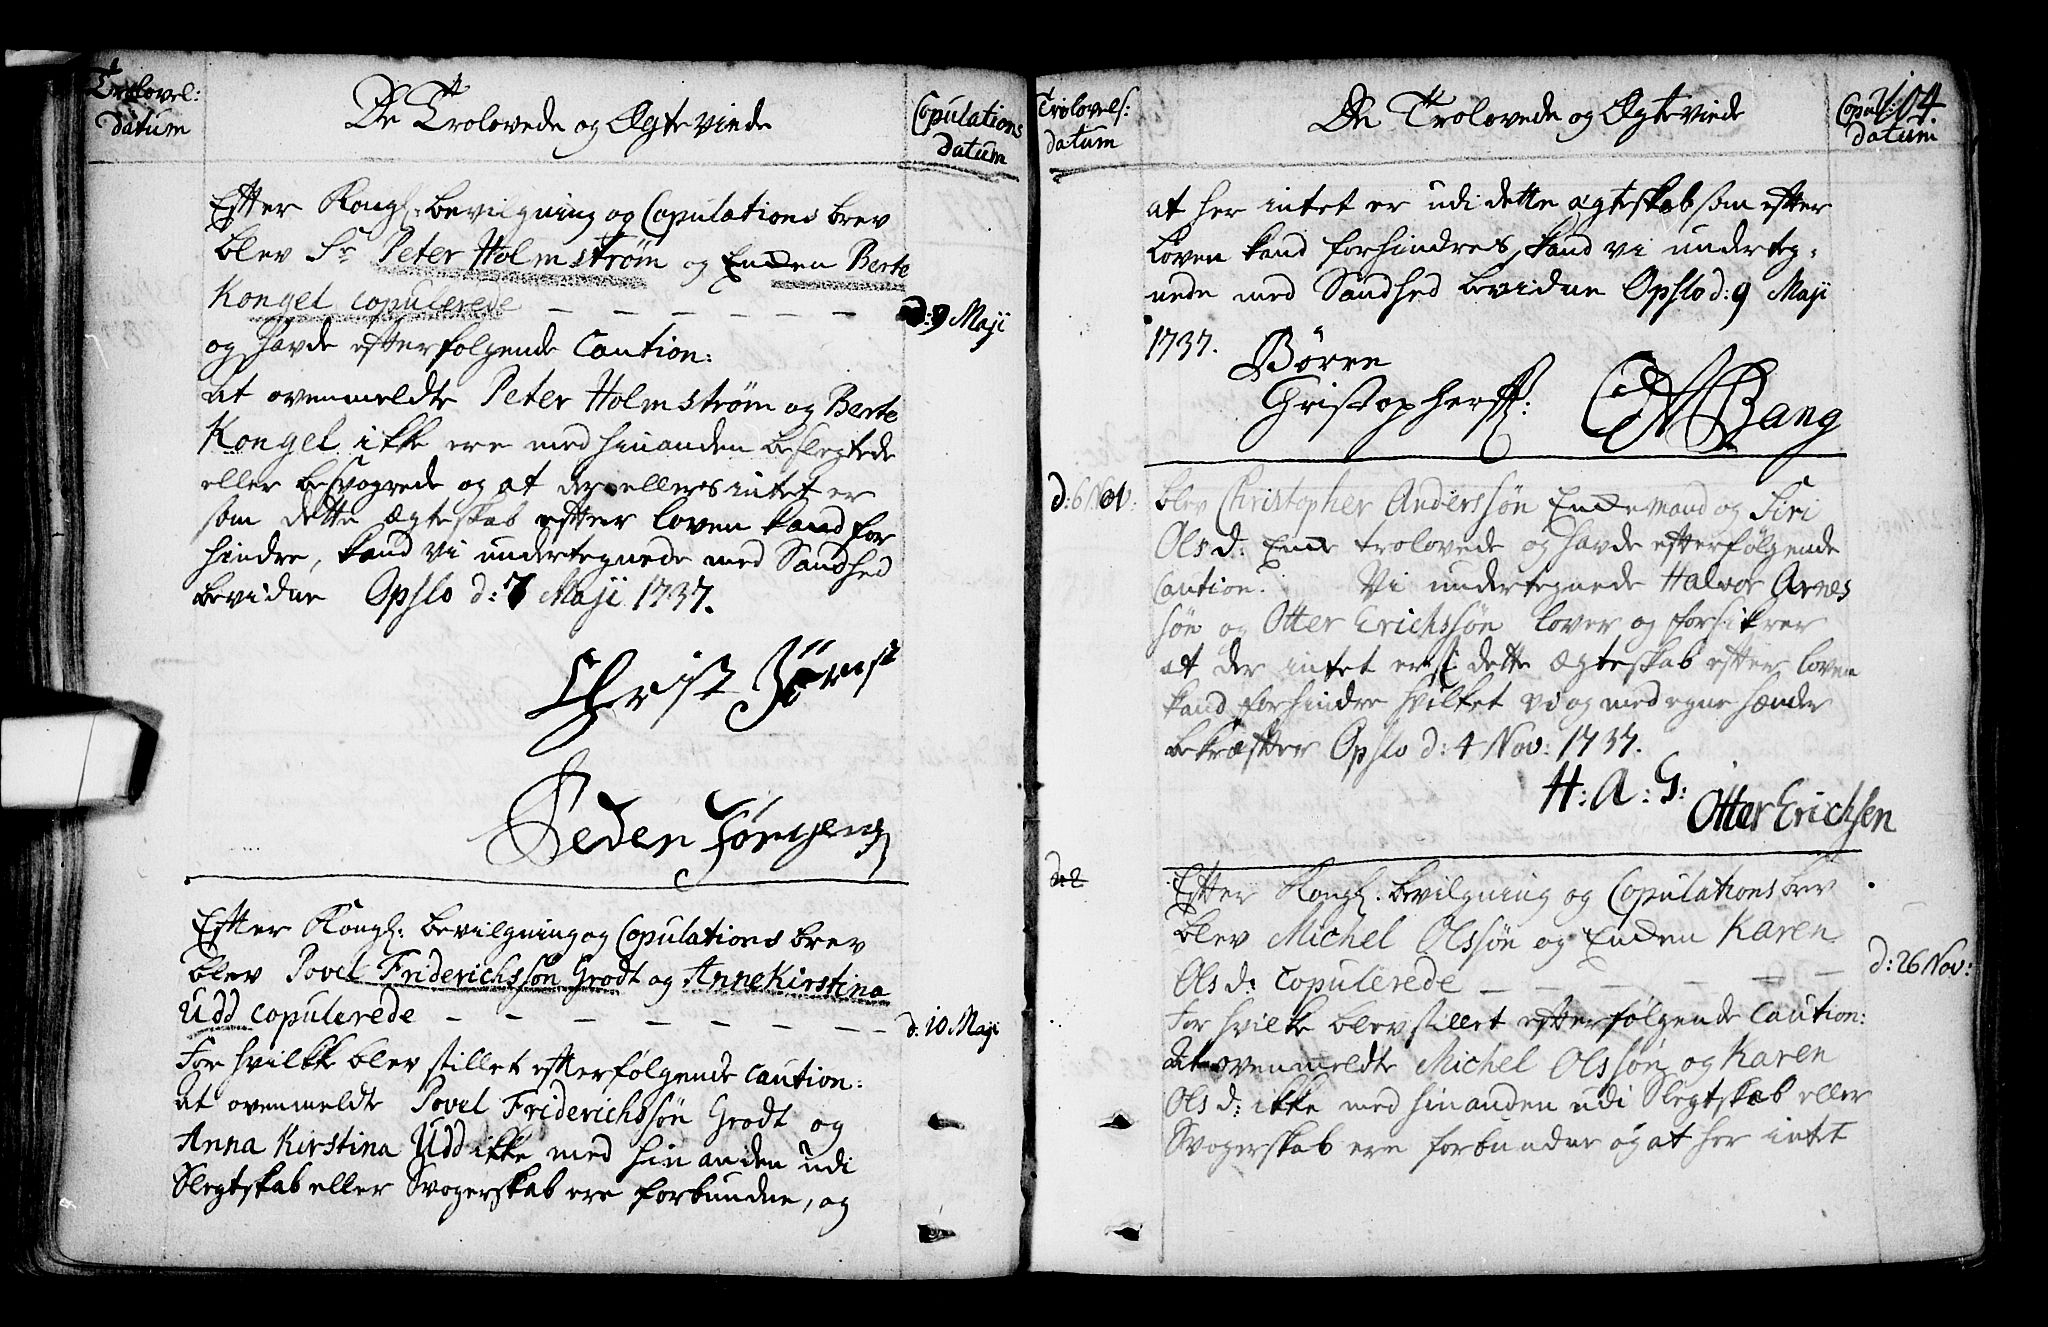 Trolovel:
datum
De Trolovede og Ægteviede
Copulations
datum
Efter Kongl: bevilgning og Copulations brev
blev Sr Peter Holmstrøm og Enken Berte
Kongel copulerede
d: 9 Maji
og havde efterfølgende Caution:
At ovenmeldte Peter Holmstrøm og Berte
Kongel ikke ere med hinanden beslegtede
eller besvogrede og at der ellers intet er
som dette Ægteskab efter loven kand for
hindre, kand vi undertegnede med Sandhed
bevidne Opslo d: 7 Maji 1737.
Christ
Peder Jörgensen
Efter Kongl: bevilgning og Copulations brev
blev Povel Friderichssøn Grodt og Anne Kirstina
Udd copulerede
d: 10 Maji
For hvilke blev stillet efterfølgende caution:
At ovenmeldte Povel Friderichssøn Grodt og
Anna Kirstina Udd ikke med hinanden udi
Slegtskab eller Svogerskab ere forbundne, og
Trolovels:
datum
De Trolovede og Ægteviede
Copul:
datum
104.
at her intet er udi dette ægteskab som efter
Loven kand forhindres, kand vi underteg-
nede med Sandhed bevidne Opslo d: 9 Maji
1737.
Börre
Christophers:
Bang
d: 6 Nov:
blev Christopher Anderssøn Enkemand og Siri
Olsd: Enke trolovede og havde efterfølgende
Caution: Vi undertegnede Halvor Arnes
søn og Otter Erichssøn lover og forsikrer
at der intet er i dette Ægteskab efter loven
kand forhindre hvilket vi og med egne hænder
bekræfter Opslo d: 4 Nov: 1737.
H: A: S:
Otter Erichsen
d: 2
Efter Kongl: bevilgning og Copulations brev
blev Michel Olssøn og Enken Karen
Olsd: copulerede
d: 26 Nov:
For hvilke blev stillet efterfølgende caution:
At ovenmeldte Michel Olssøn og Karen
Olsd: ikke med hinanden udi Slegtskab eller
Svogerskab ere forbundne og at her intet